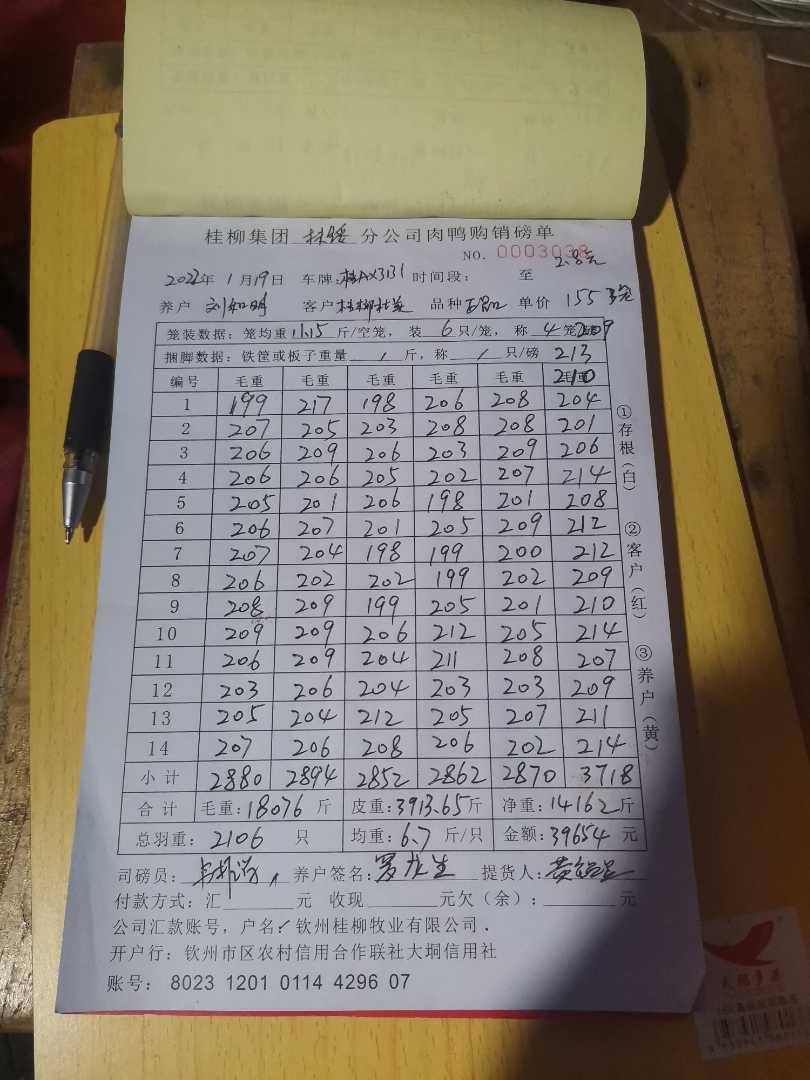 桂柳集团 扶绥 分公司肉鸭购销磅单
NO. 0003038
2.8元
2022年 1月19日 车牌:桂AX3131 时间段: 至
养户 刘和明 客户 桂柳 品种 单价 155
笼装数据:笼均重11.15斤/空笼,装6只/笼,称4笼 209
捆脚数据:铁筐或板子重量 / 斤,称 / 只/磅 213
编号 毛重 毛重 毛重 毛重 毛重 毛重 210
1 199 217 198 206 208 204
2 207 205 203 208 208 201
3 206 209 206 203 209 206
4 206 206 205 202 207 214
5 205 201 206 198 201 208
6 206 207 201 205 209 212
7 207 204 198 199 200 212
8 206 202 202 199 202 209
9 208 209 199 205 201 210
10 209 209 206 212 205 214
11 206 209 204 211 208 207
12 203 206 204 203 203 209
13 205 204 212 205 207 211
14 207 206 208 206 202 214
小计 2880 2894 2852 2862 2870 3718
合计 毛重:18076斤 皮重:3913.65斤 净重:14162斤
总羽重:2106 只 均重:6.7 斤/只 金额:39654 元
司磅员: 养户签名: 提货人:
付款方式:汇 元 收现 元欠(余): 元
公司汇款账号,户名:钦州桂柳牧业有限公司.
开户行:钦州市区农村信用合作联社大垌信用社
账号: 8023 1201 0114 4296 07
①存根(白)
②客户(红)
③养户(黄)